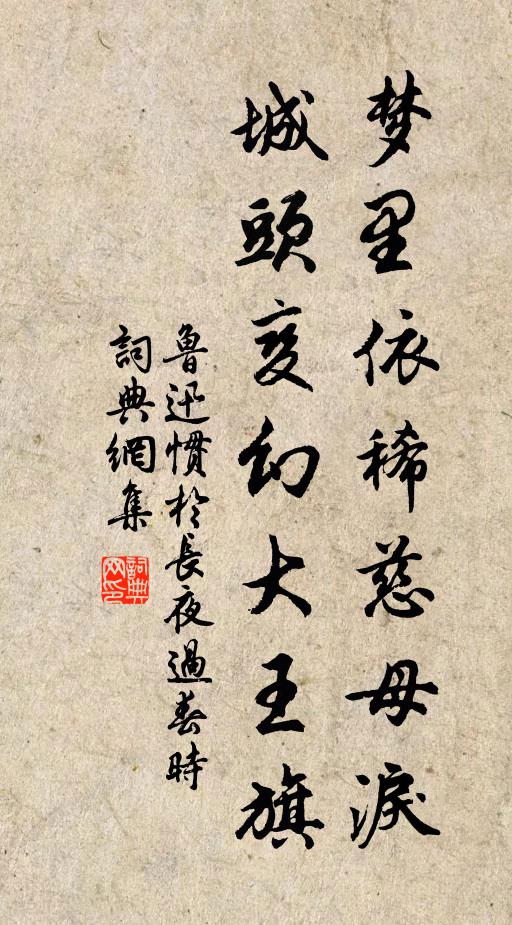 梦里依稀慈母淚
城頭变幻大王旗
魯迅慣於長夜過春時
詞典網集
詞典网印